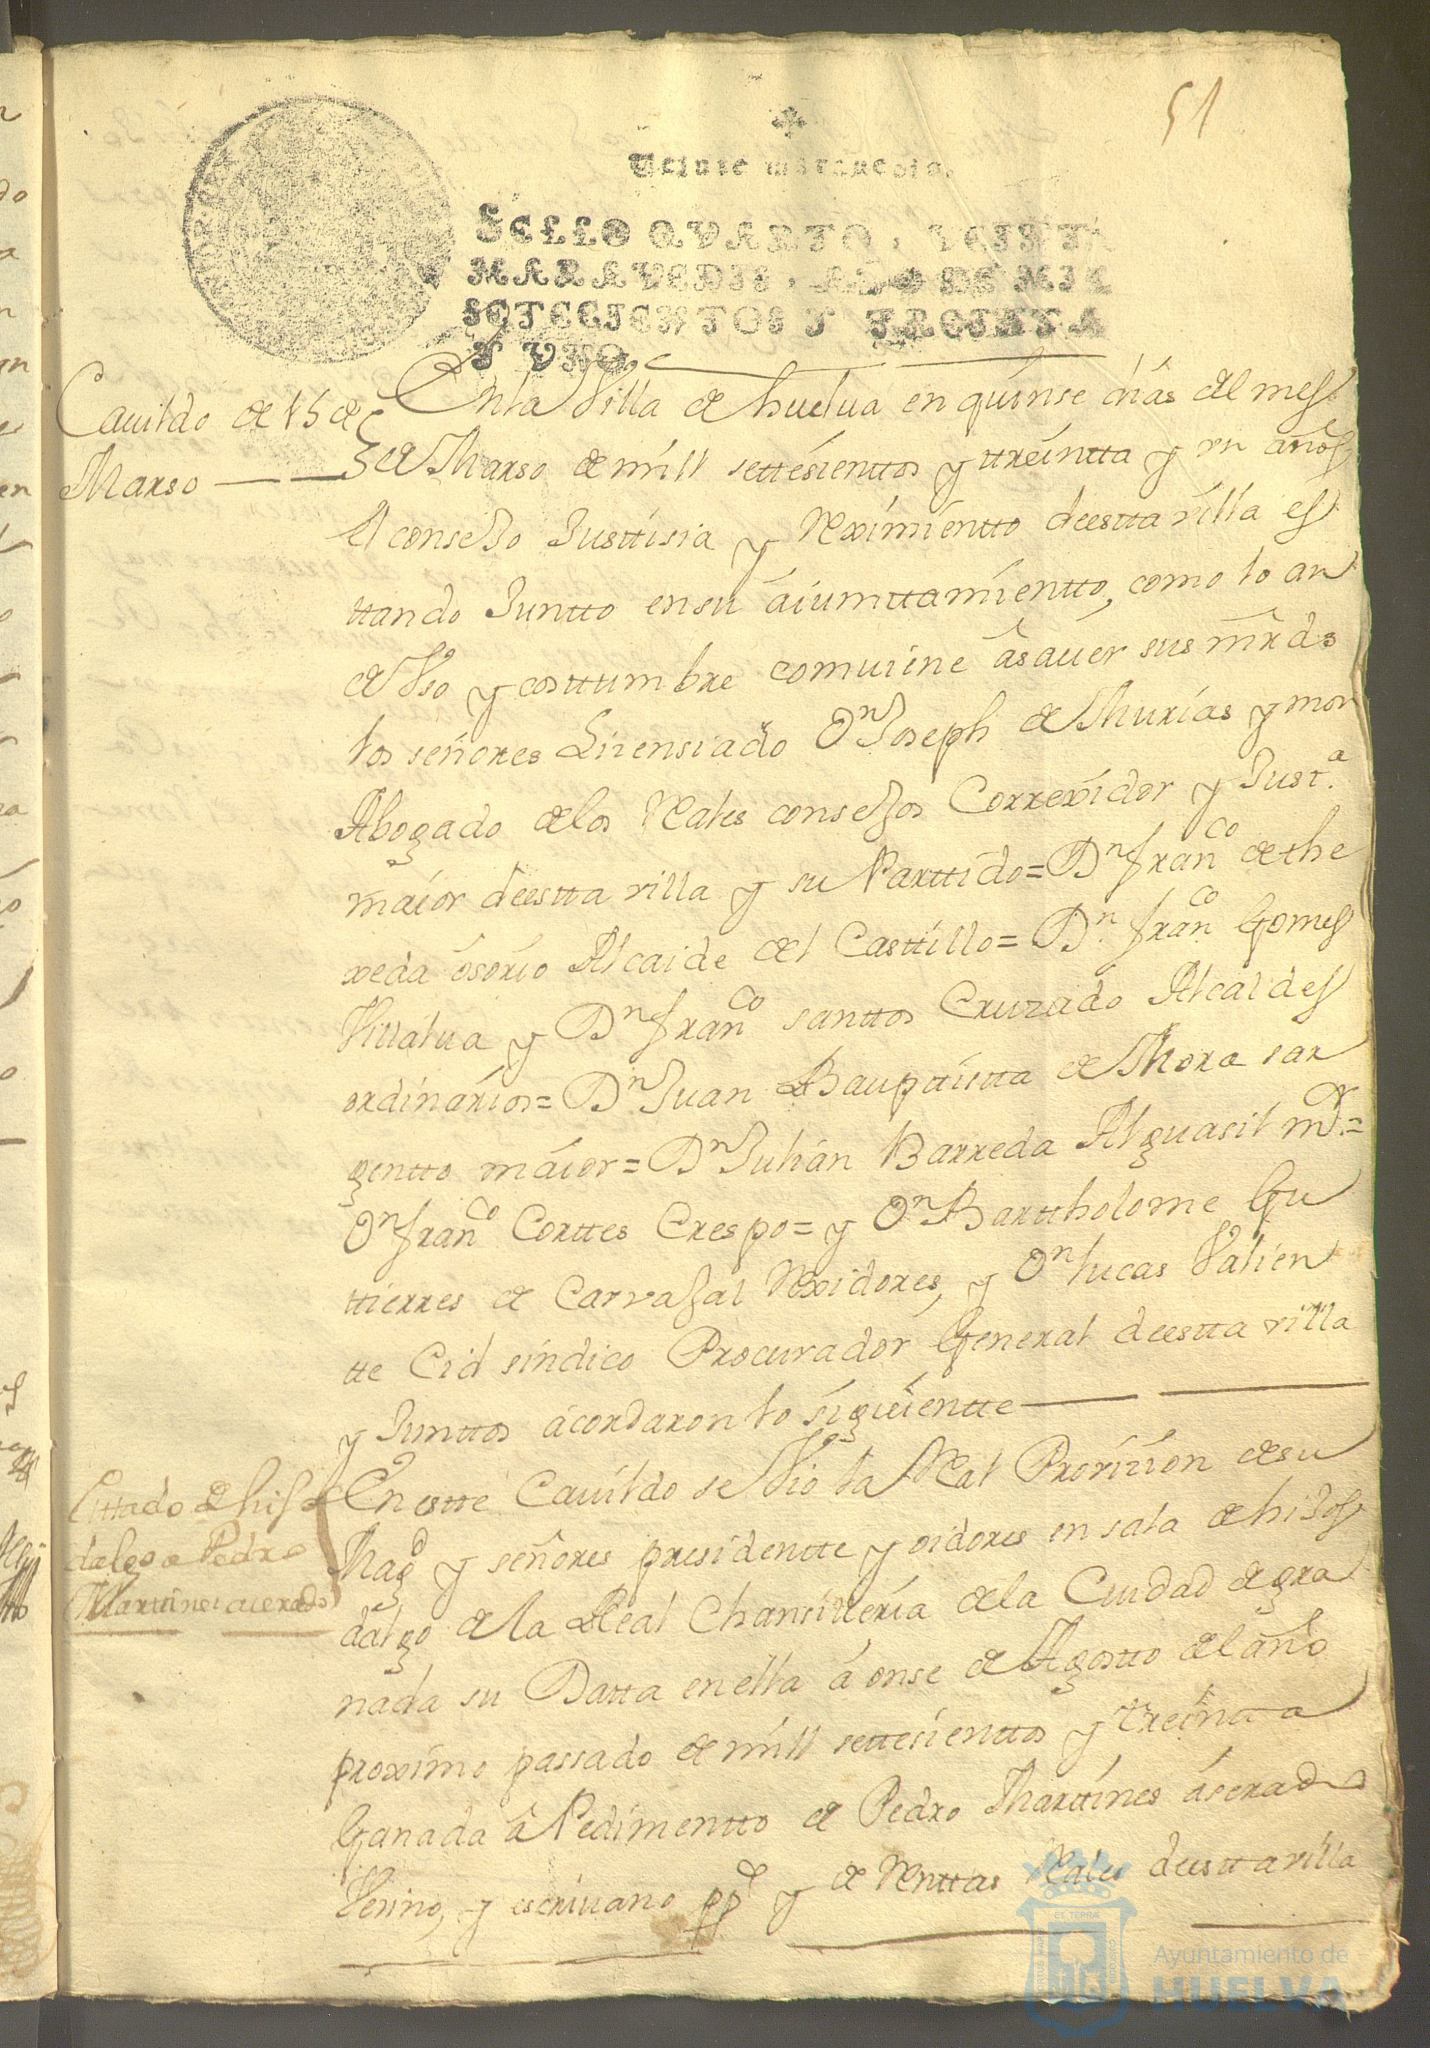 51
Veinte maravedis.
SELLO QVARTO, VEINTE
MARAVEDIS, AÑO DE MIL
SETECIENTOS Y TREINTA
Y VNO.
Cauildo de 15 de
Marso
En la Villa de huelua en quinse dias del mes
de Marso de mill settesienttos y ttreintta y un años
el consejo Justtisia y Reximientto deestta villa es
ttando Juntto en su aiunttamientto, como lo an
de Vso y costtumbre comuiene â sauer sus mrds
los señores Lisensiado Dn Joseph de Murias y mon
Abogado de los Rales consejos Correxidor y Justa
maior deestta villa y su Parttido= Dn Franco de the
xeda osorio Alcaide del Casttillo= Dn Franco Gomes
Villalua y Dn Franco santtos Cruzado Alcaldes
ordinarios= Dn Juan Baupttistta de Mora sar
gentto maior= Dn Julian Barreda Alguasil mr.=
Dn Franco Corttes Crespo= y Dn Barttholome Gu
ttierres de Carvajal Rexidores, y Dn lucas Valien
tte Cid sindico Procurador General deestta villa
y Junttos acordaron lo siguientte
Esttado de hijo
dalgo a Pedro
Martines acerado
En estte Cauildo se Vio la Real Provizion de su
Magd y señores presidentte y oidores en sala de hijos
dalgo de la Real Chansilleria de la Ciudad de gra
nada su Datta en ella â onse de Agostto del año
proximo passado de mill settesienttos y treintta
Ganada â Pedimentto de Pedro Marttines aserado
Vesino, y escriuano ppco y de Renttas Rales deestta villa
Ayuntamiento de
HUELVA